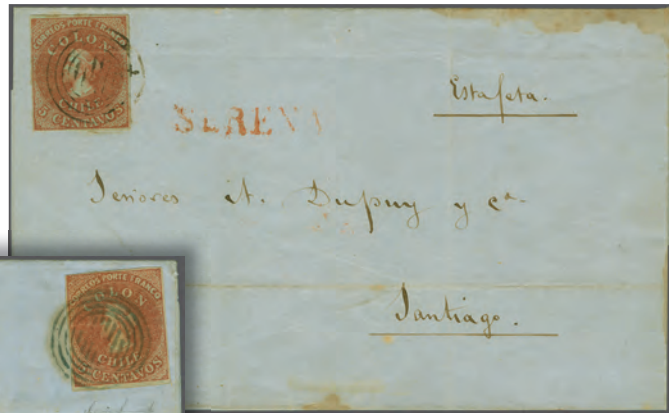 CORREOS PORTE FRANCO
COLON
CHILE
5 CENTAVOS
Estafeta.
SERENA
Senores A. Dupuy y Ca.
Santiago.
CORREOS PORTE FRANCO
COLON
CHILE
5 CENTAVOS